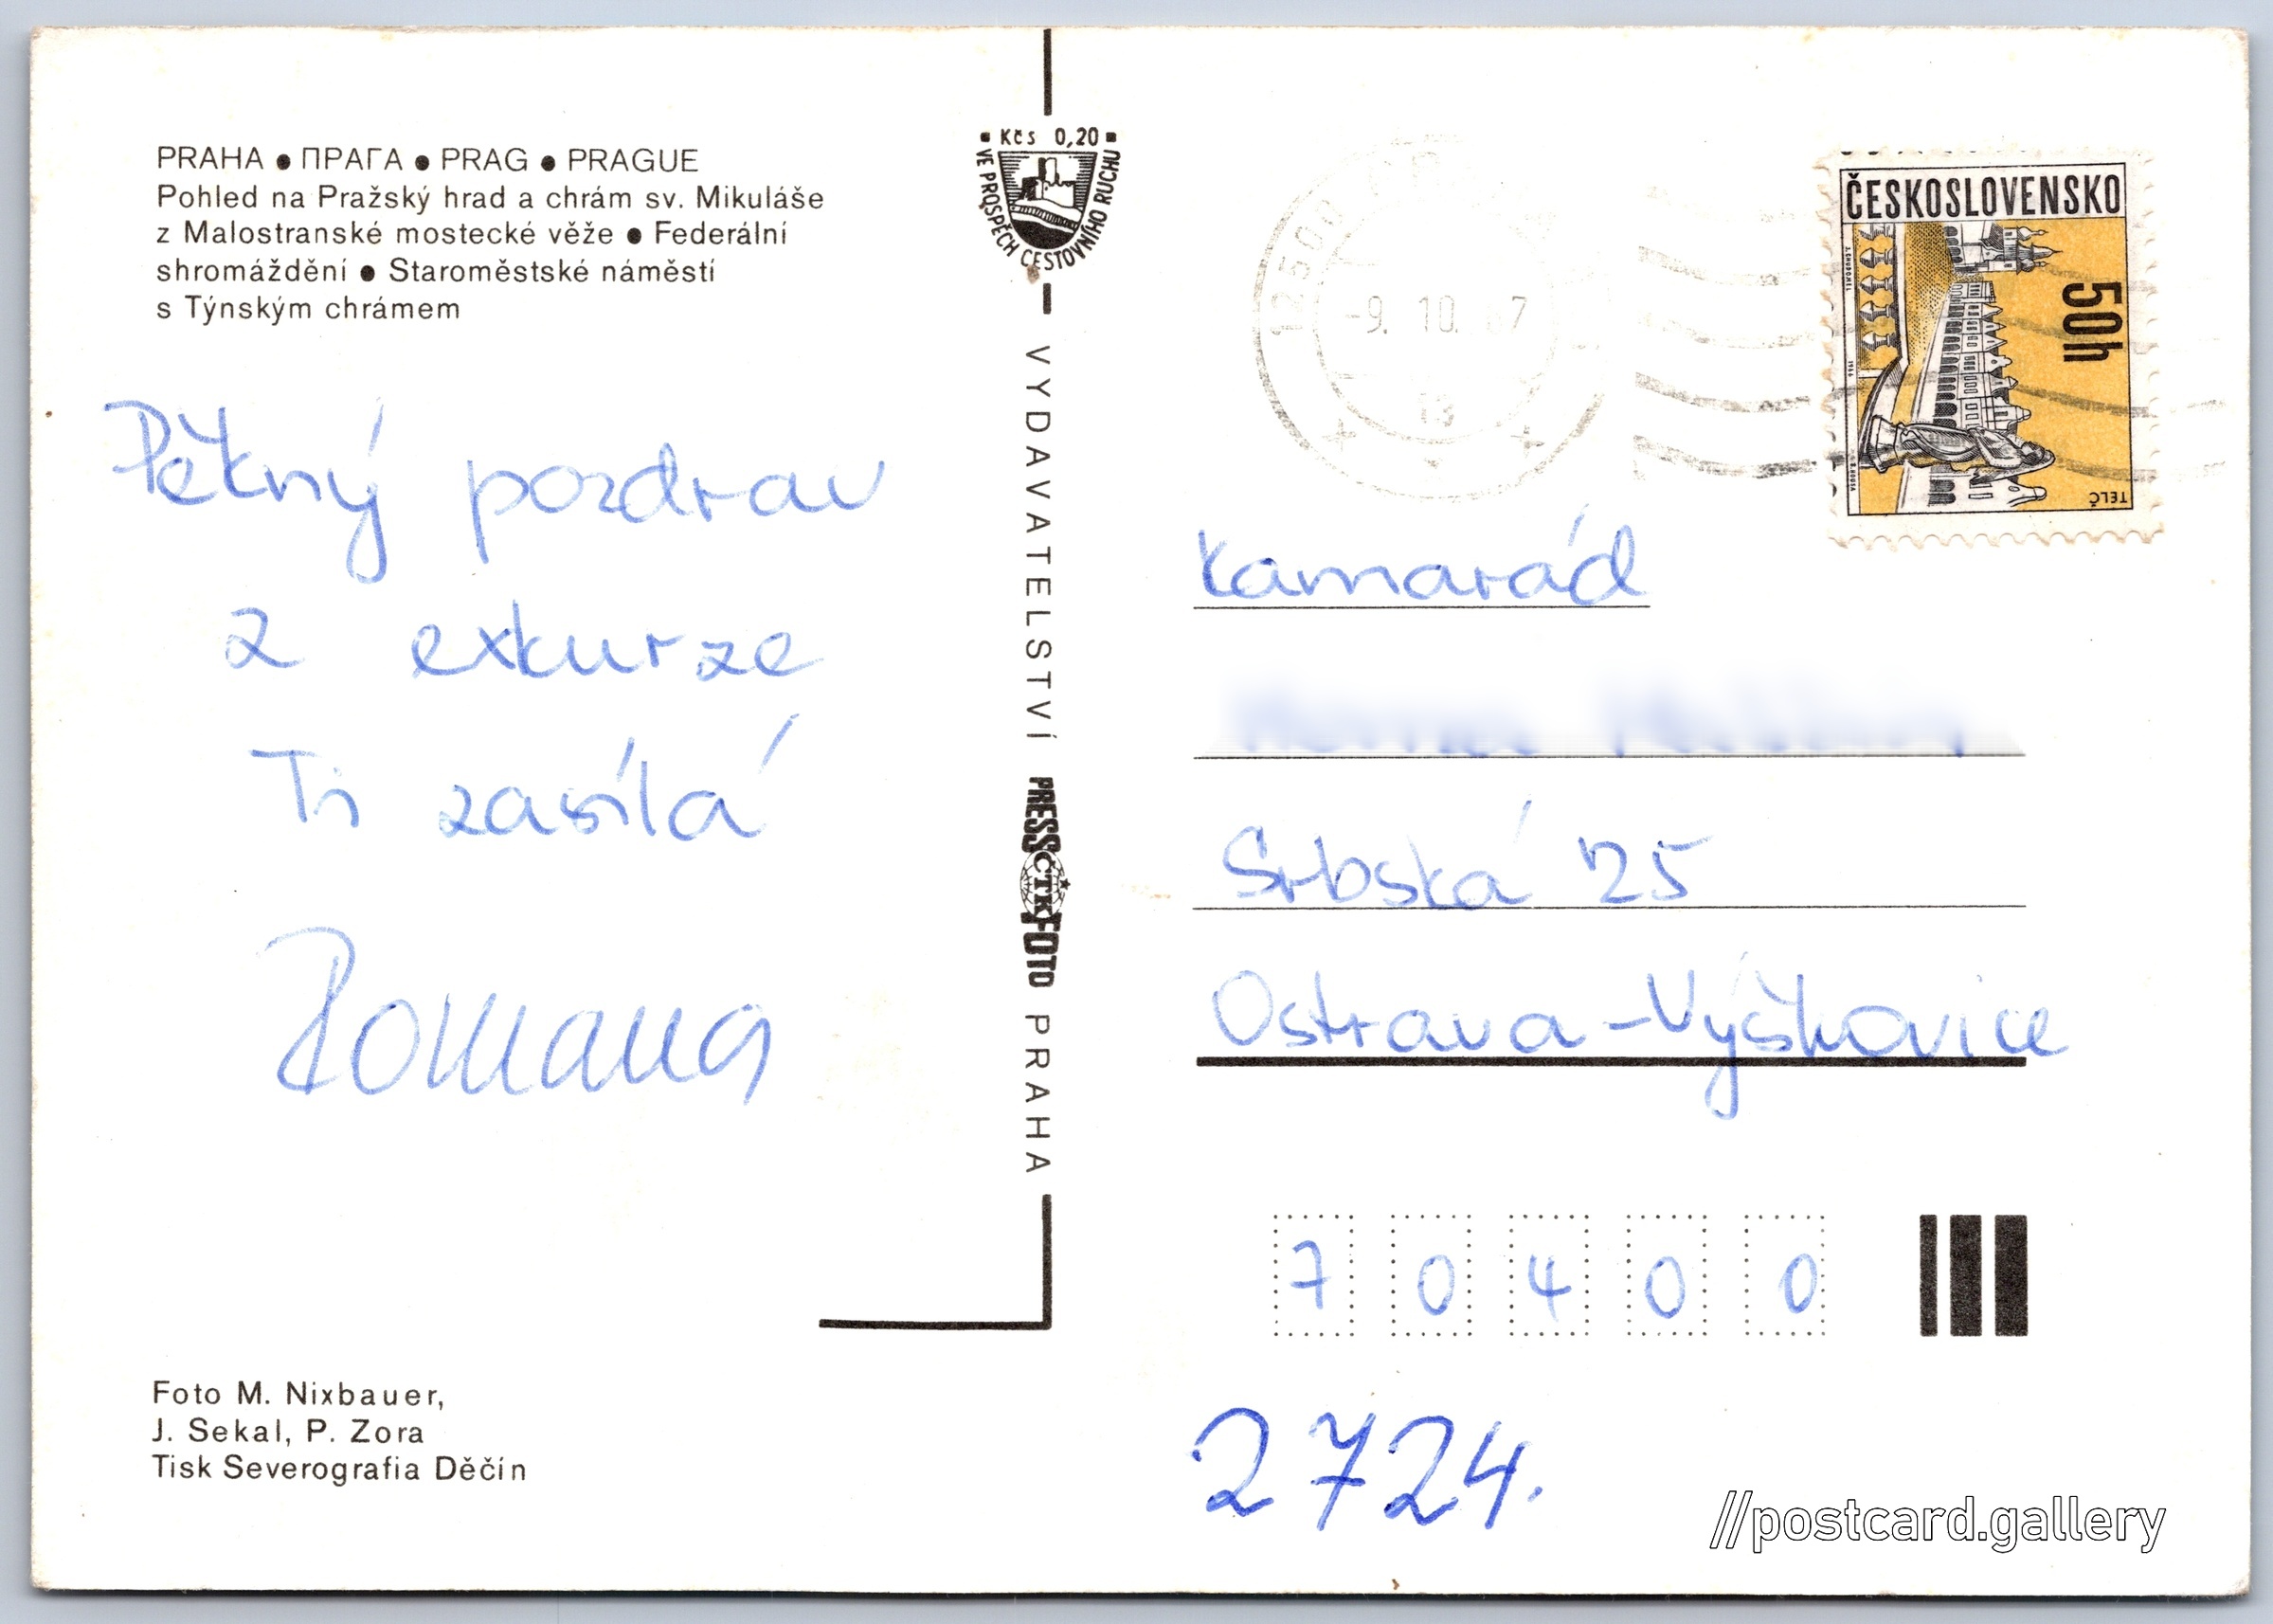 PRAHA ● ПРАГА ● PRAG ● PRAGUE
Pohled na Pražský hrad a chrám sv. Mikuláše
z Malostranské mostecké věže ● Federální
shromáždění ● Staroměstské náměstí
s Týnským chrámem
Pěkný pozdrav
z exkurze
Ti zasílá
Romana
Foto M. Nixbauer,
J. Sekal, P. Zora
Tisk Severografia Děčín
Kčs 0,20
VE PROSPĚCH CESTOVNÍHO RUCHU
VYDAVATELSTVÍ PRESSFOTO PRAHA
ČTK
12500
-9. 10. 7
13
ČESKOSLOVENSKO
50h
TELČ
1966
Kamarád
Srbská 25
Ostrava-Výškovice
70400
2724.
//postcard.gallery